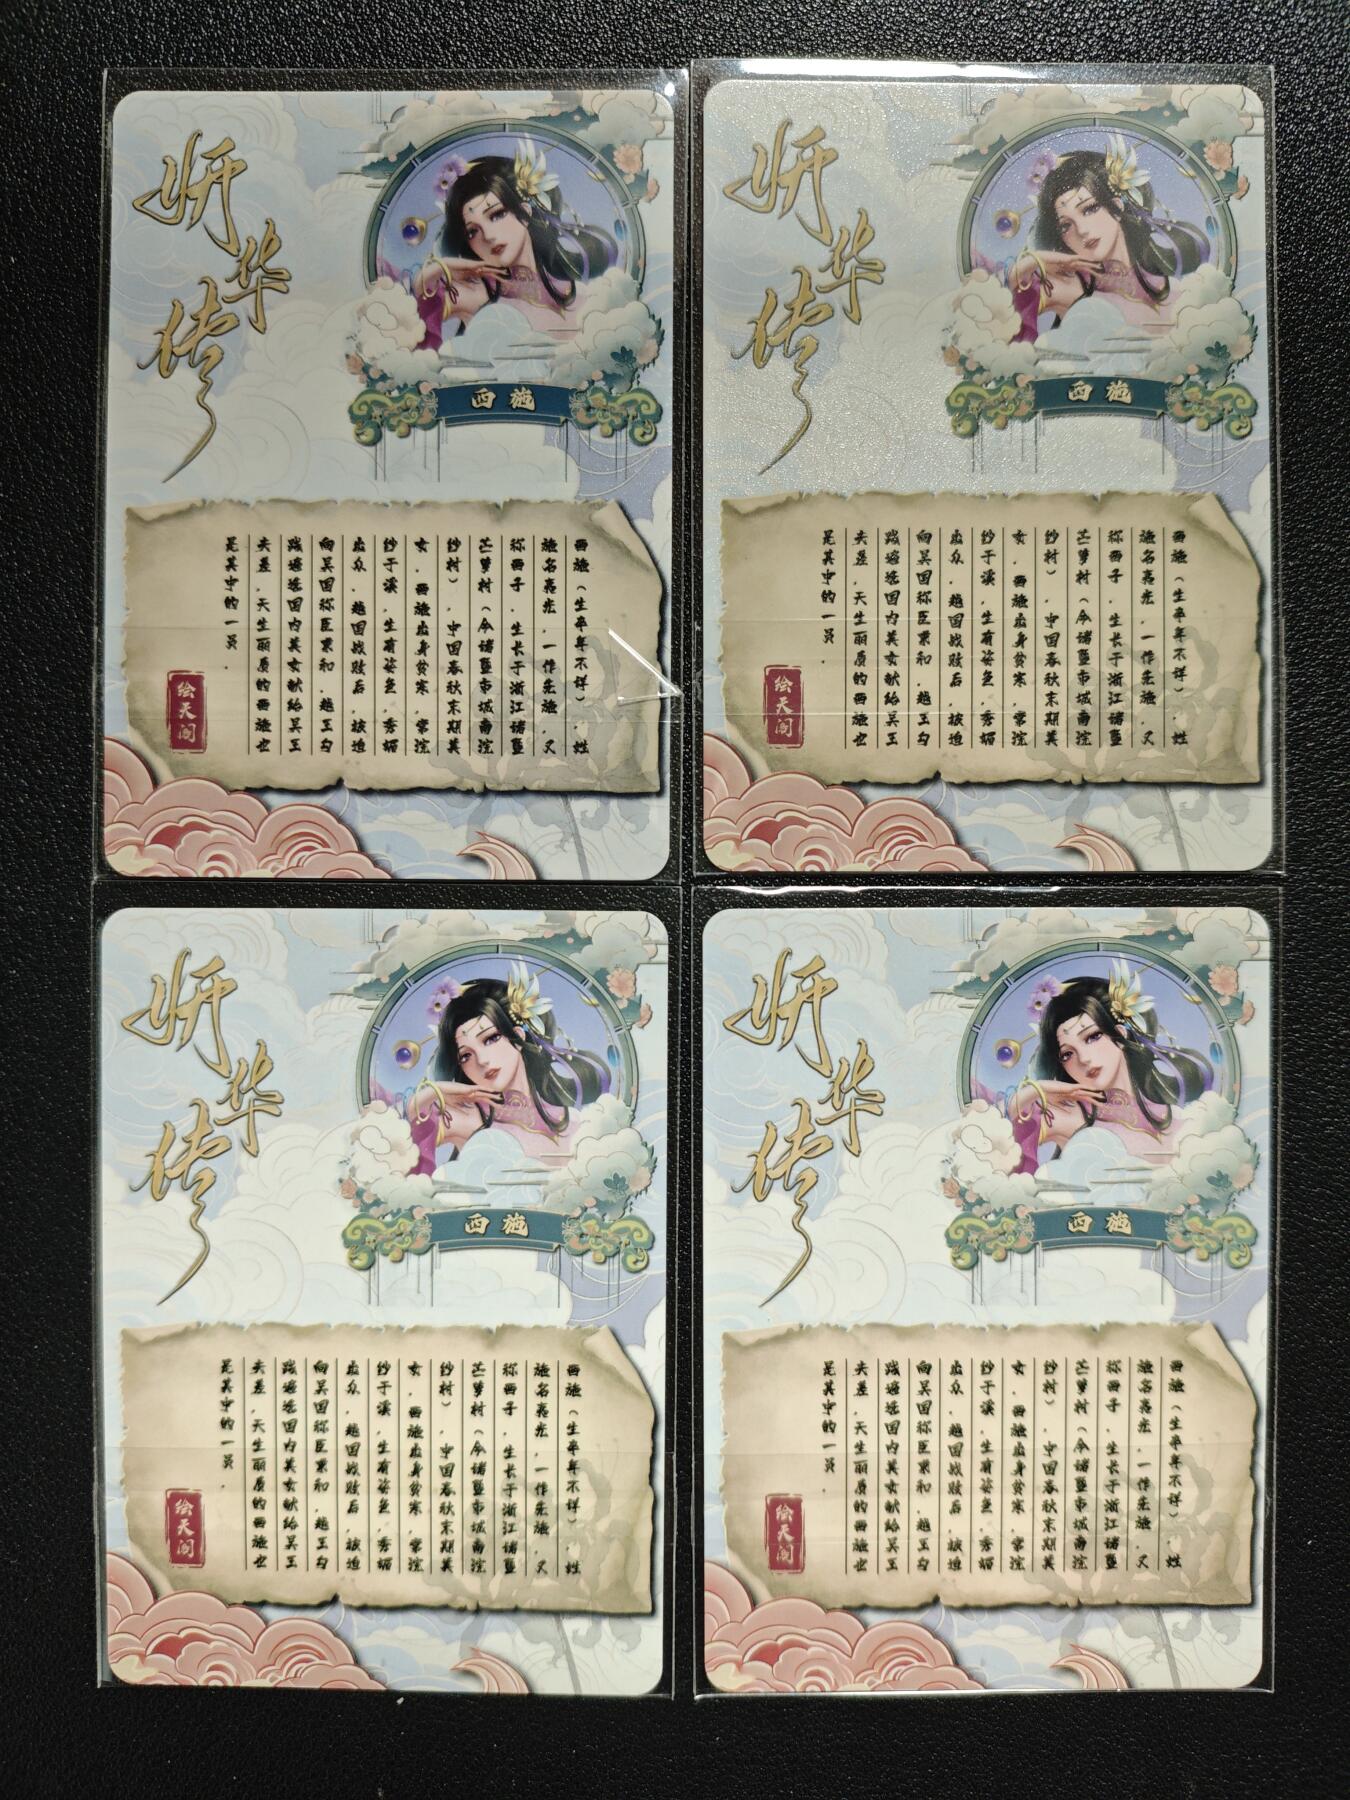 妍华传
西施
西施（生卒年不详），姓
施名夷光，一作先施，又
称西子，生长于浙江诸暨
苎萝村（今诸暨市城南浣
纱村），中国春秋末期美
女，西施出身贫寒，常浣
纱于溪，生有姿色，秀媚
出众，越国战败后，被迫
向吴国称臣求和，越王勾
践遍选国内美女献给吴王
夫差，天生丽质的西施也
是其中的一员.
绘天阁
妍华传
西施
西施（生卒年不详），姓
施名夷光，一作先施，又
称西子，生长于浙江诸暨
苎萝村（今诸暨市城南浣
纱村），中国春秋末期美
女，西施出身贫寒，常浣
纱于溪，生有姿色，秀媚
出众，越国战败后，被迫
向吴国称臣求和，越王勾
践遍选国内美女献给吴王
夫差，天生丽质的西施也
是其中的一员.
绘天阁
妍华传
西施
西施（生卒年不详），姓
施名夷光，一作先施，又
称西子，生长于浙江诸暨
苎萝村（今诸暨市城南浣
纱村），中国春秋末期美
女，西施出身贫寒，常浣
纱于溪，生有姿色，秀媚
出众，越国战败后，被迫
向吴国称臣求和，越王勾
践遍选国内美女献给吴王
夫差，天生丽质的西施也
是其中的一员.
绘天阁
妍华传
西施
西施（生卒年不详），姓
施名夷光，一作先施，又
称西子，生长于浙江诸暨
苎萝村（今诸暨市城南浣
纱村），中国春秋末期美
女，西施出身贫寒，常浣
纱于溪，生有姿色，秀媚
出众，越国战败后，被迫
向吴国称臣求和，越王勾
践遍选国内美女献给吴王
夫差，天生丽质的西施也
是其中的一员.
绘天阁